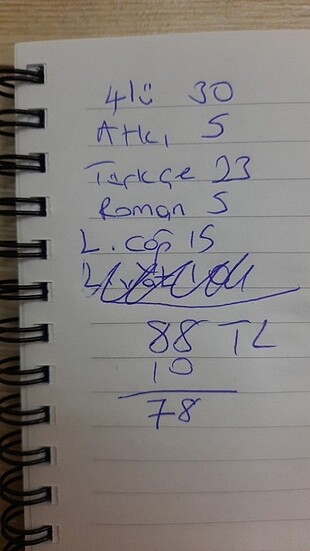 4lü 30
Atkı 5
Türkçe 23
Roman 5
L. coğ 15
88 TL
10
78